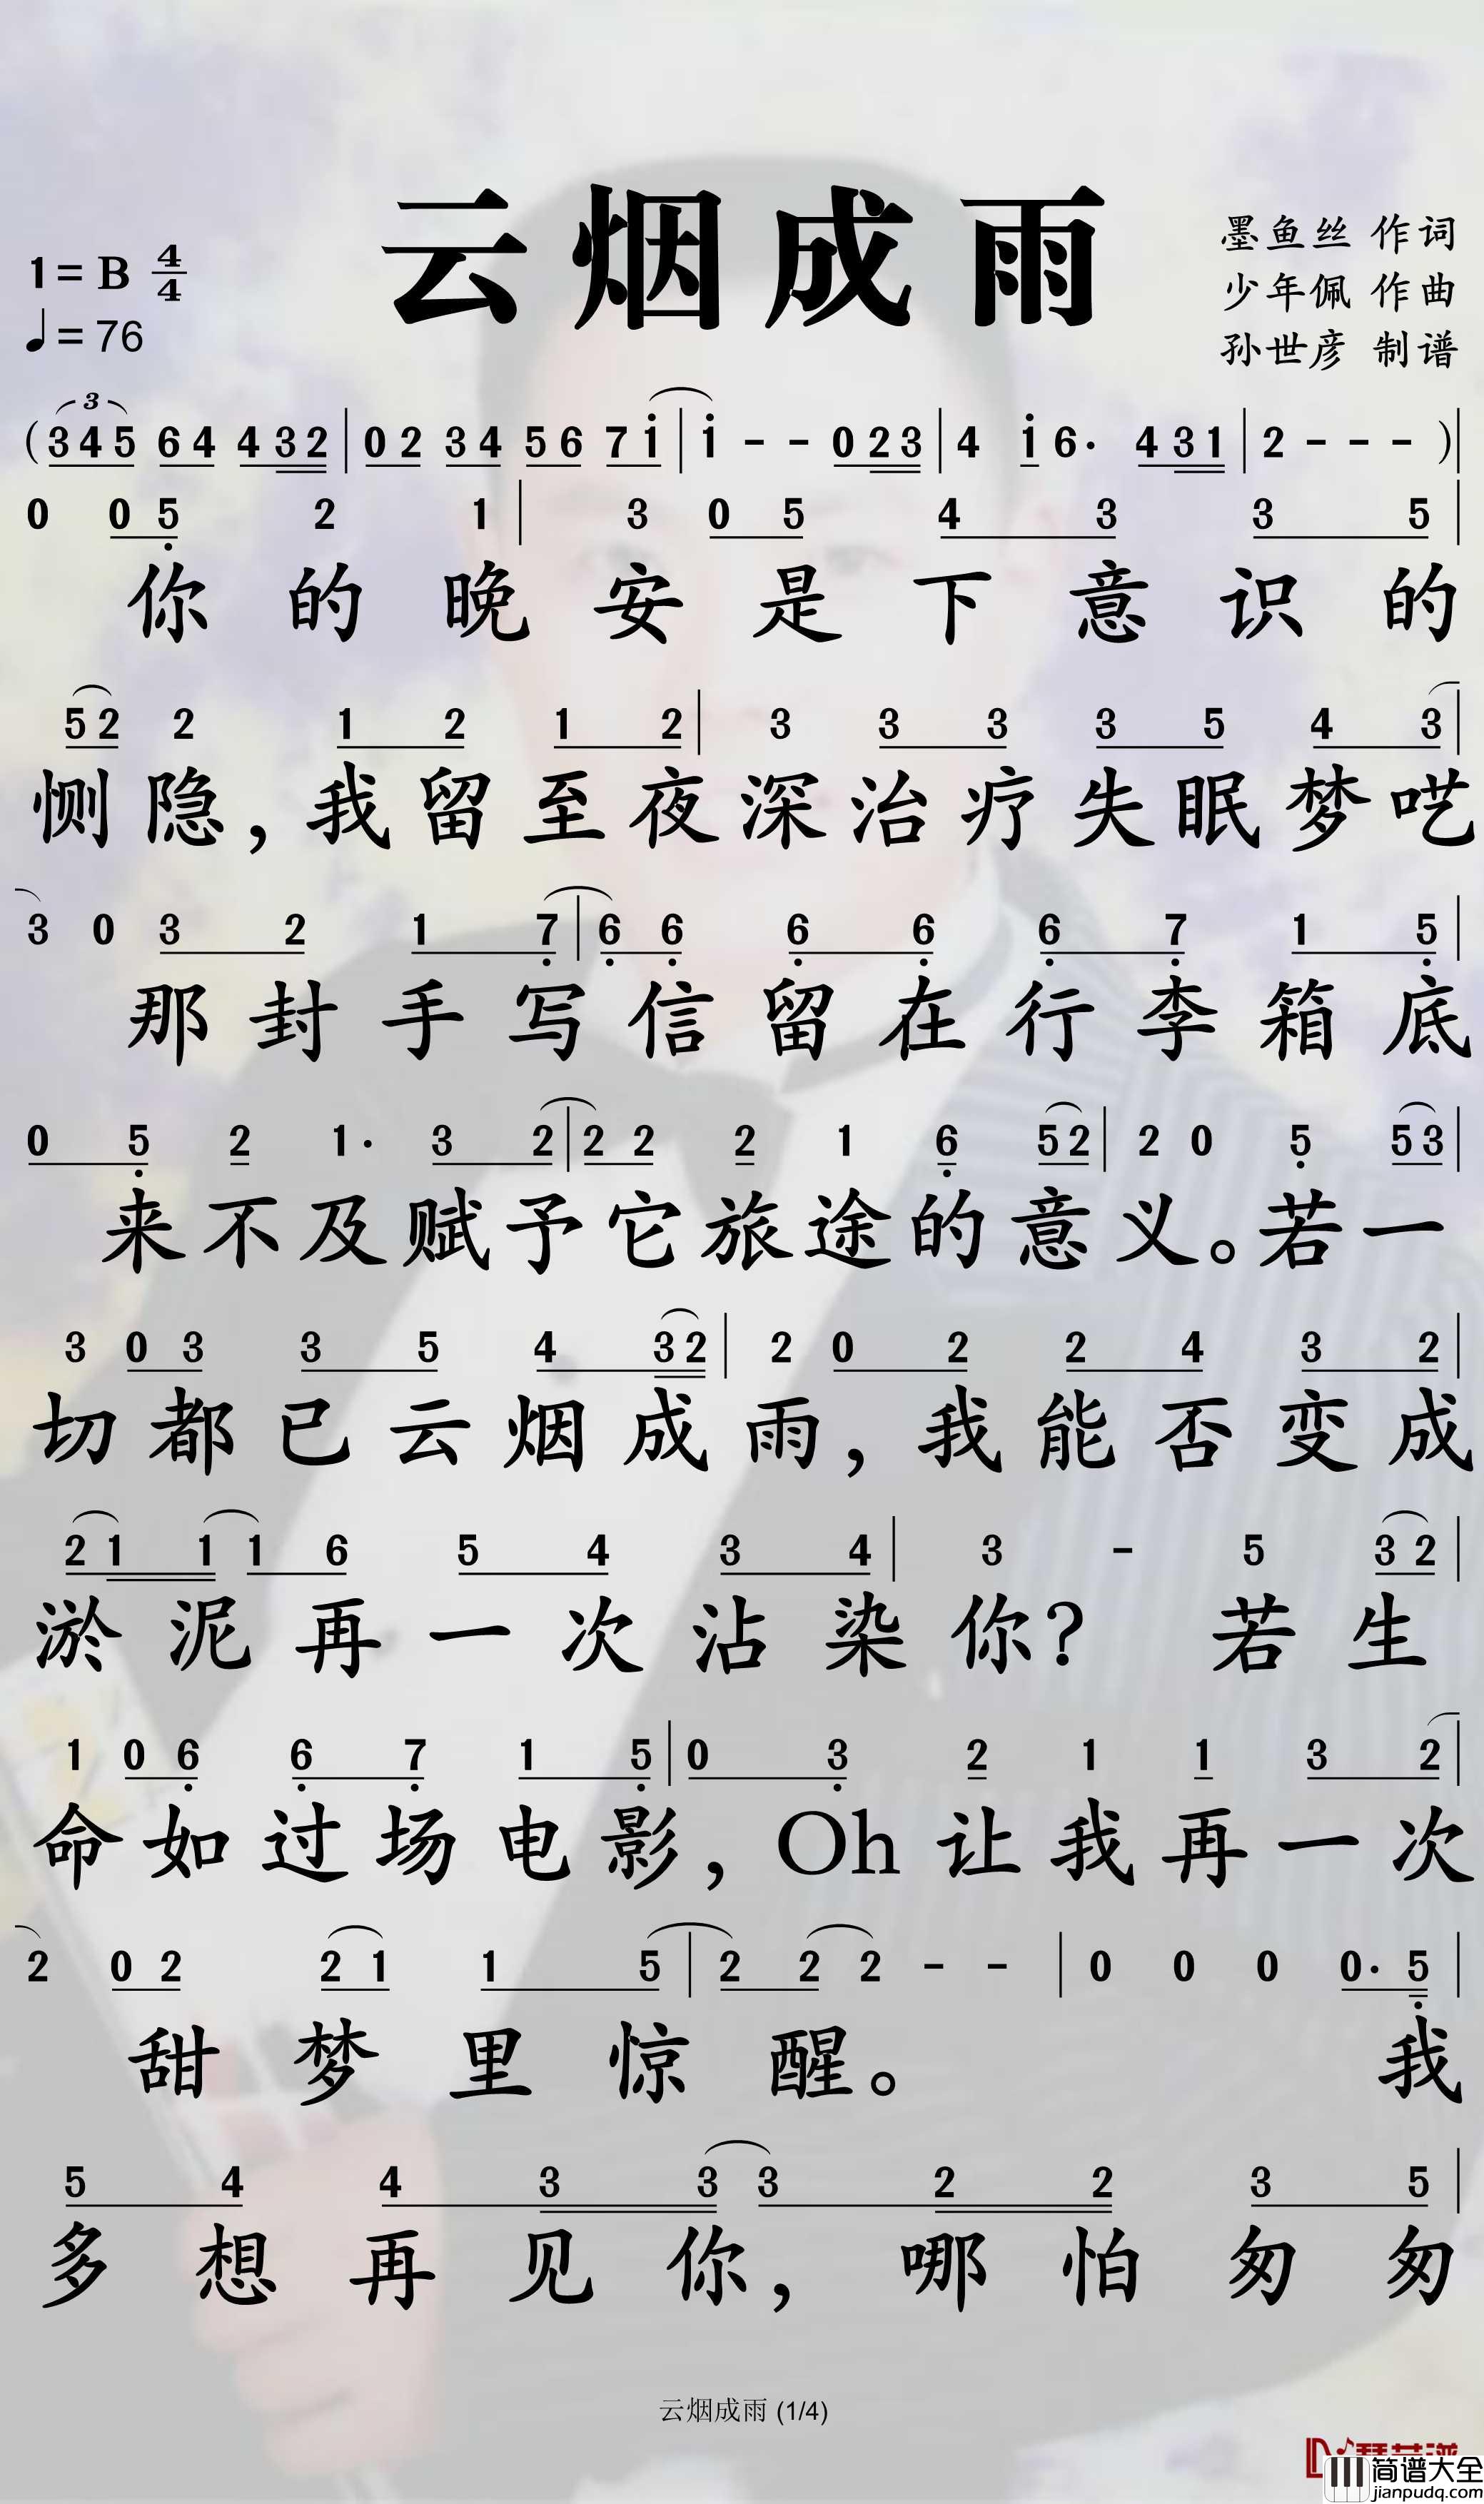 云烟成雨
1=B 4/4
♩=76
墨鱼丝 作词
少年佩 作曲
孙世彦 制谱
3
( 3 4 5 6 4 4 3 2 | 0 2 3 4 5 6 7 i | i - - 0 2 3 | 4 i 6· 4 3 1 | 2 - - - ) |
0 0 5 2 1 | 3 0 5 4 3 3 5 |
你的晚安是下意识的
5 2 2 1 2 1 2 | 3 3 3 3 5 4 3 |
恻隐，我留至夜深治疗失眠梦呓
3 0 3 2 1 7 | 6 6 6 6 6 7 1 5 |
那封手写信留在行李箱底
0 5 2 1· 3 2 | 2 2 2 1 6 5 2 | 2 0 5 5 3 |
来不及赋予它旅途的意义。若一
3 0 3 3 5 4 3 2 | 2 0 2 2 4 3 2 |
切都已云烟成雨，我能否变成
2 1 1 1 6 5 4 3 4 | 3 - 5 3 2 |
淤泥再一次沾染你？ 若生
1 0 6 6 7 1 5 | 0 3 2 1 1 3 2 |
命如过场电影，Oh让我再一次
2 0 2 2 1 1 5 | 2 2 2 - - | 0 0 0 0· 5 |
甜梦里惊醒。 我
5 4 4 3 3 3 2 2 3 5 |
多想再见你，哪怕匆匆
云烟成雨 (1/4)
简谱大全
jianpudq.com